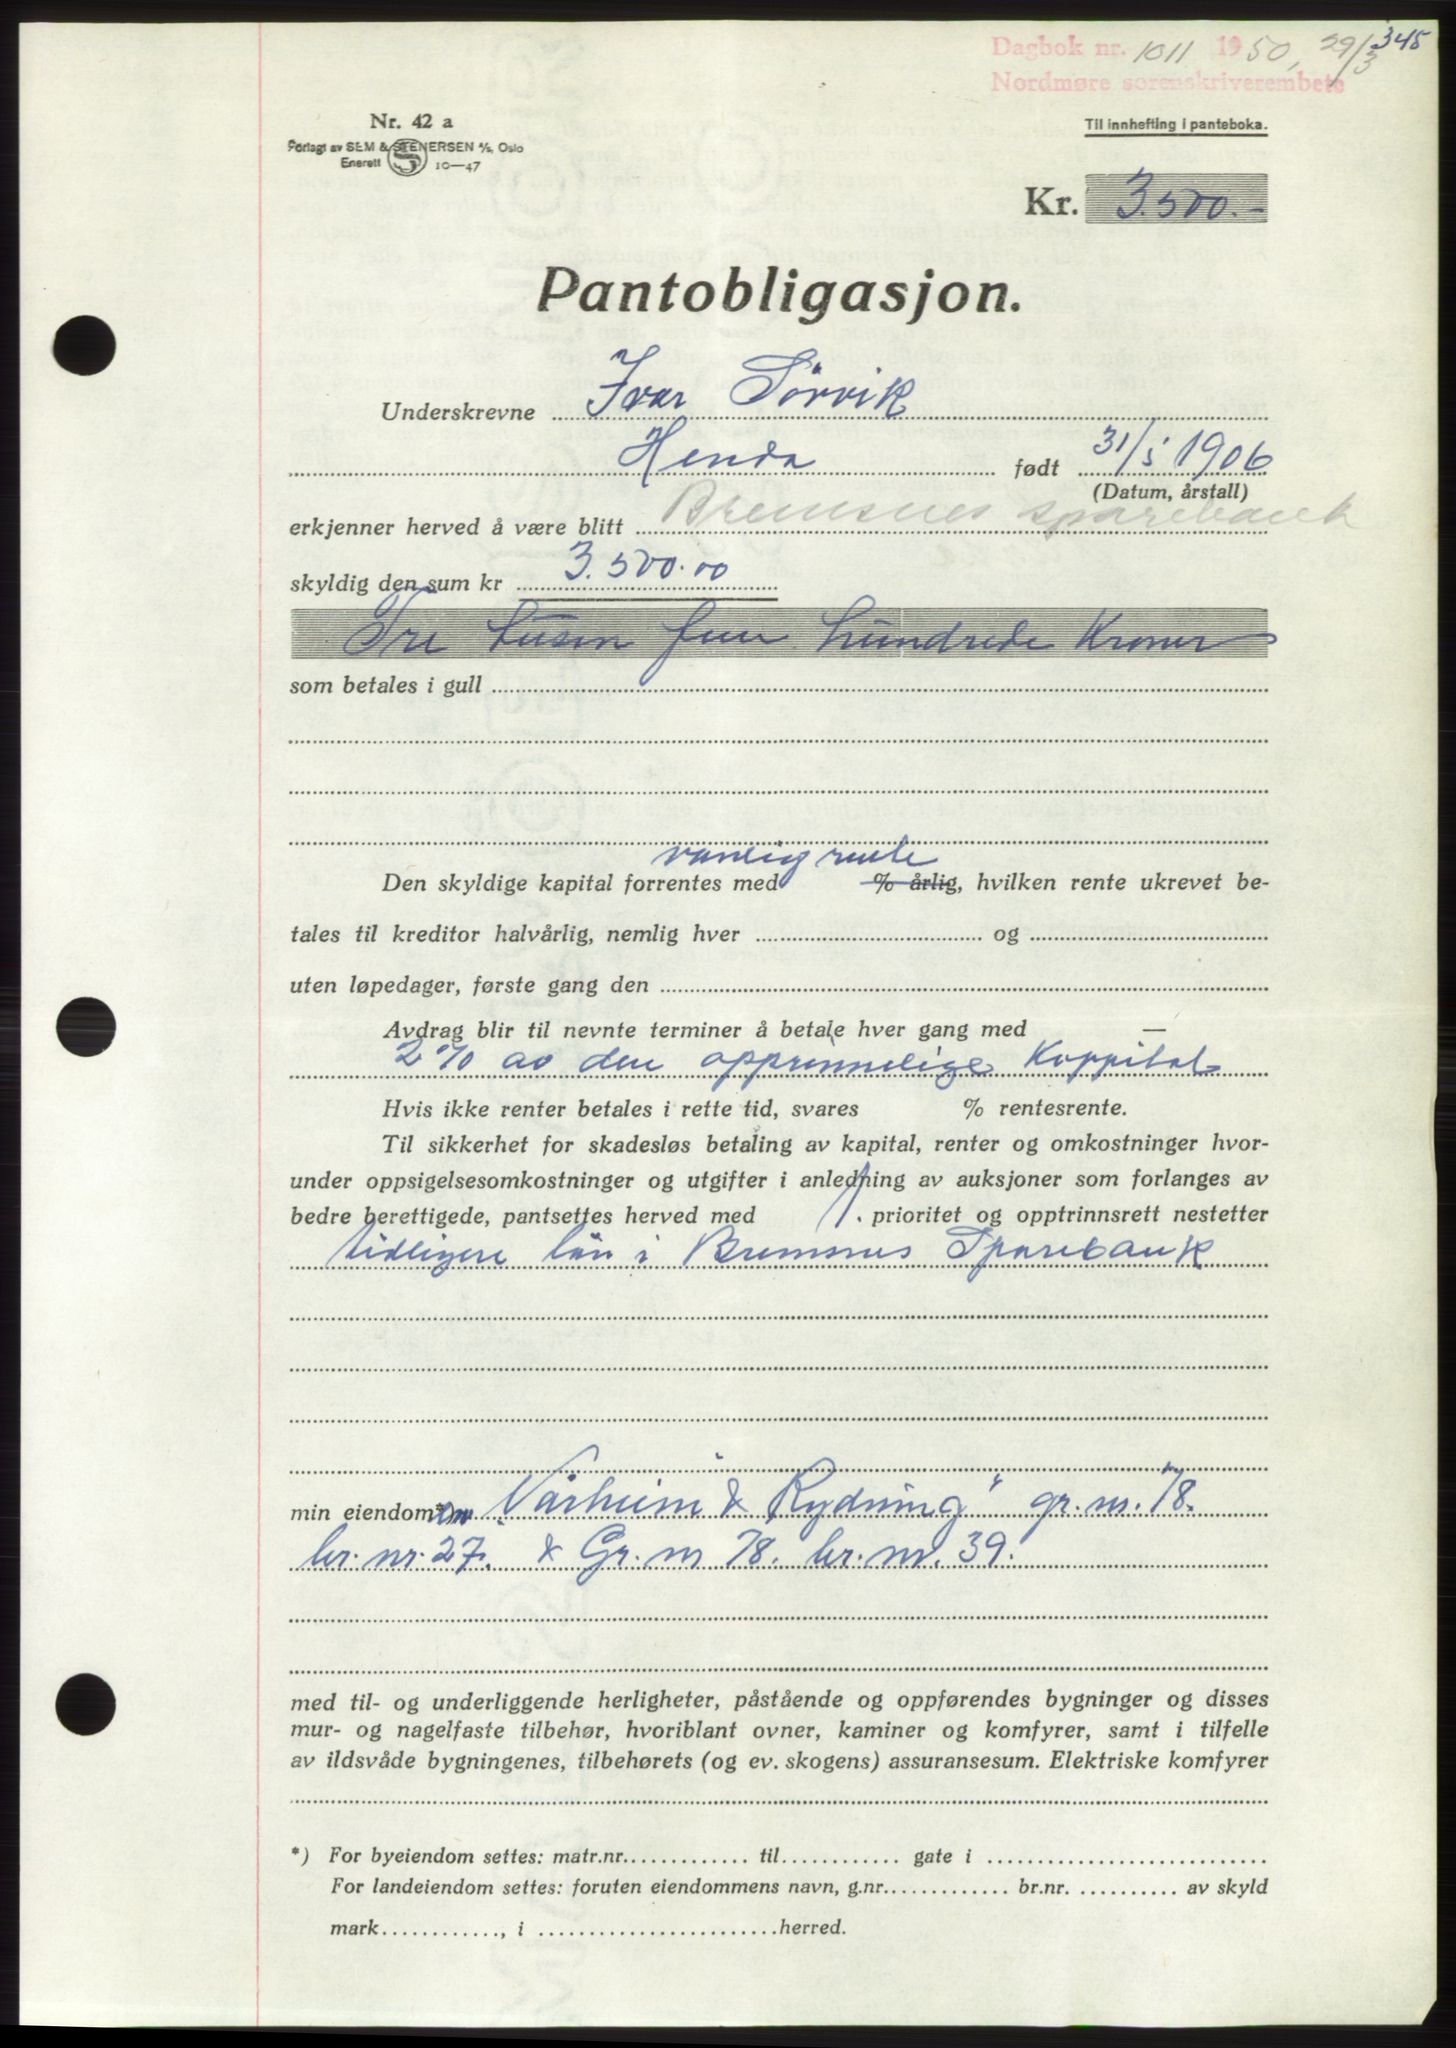 345
Dagbok nr. 1011 1950, 29/3
Nordmøre sorenskriverembete
Nr. 42 a
Forlagt av SEM & STENERSEN A/S, Oslo
Enerett 10—47
Til innhefting i panteboka.
Kr. 3.500.-
Pantobligasjon.
Underskrevne Ivar Sörvik
Henda født 31/5 1906
(Datum, årstall)
erkjenner herved å være blitt Bremsnes sparebank
skyldig den sum kr 3.500.00
Tre tusen fem hundrede Kroner
som betales i gull
vanlig rente
Den skyldige kapital forrentes med % årlig, hvilken rente ukrevet be-
tales til kreditor halvårlig, nemlig hver og
uten løpedager, første gang den
Avdrag blir til nevnte terminer å betale hver gang med —
2 % av den opprinnelige Kappital
Hvis ikke renter betales i rette tid, svares % rentesrente.
Til sikkerhet for skadesløs betaling av kapital, renter og omkostninger hvor-
under oppsigelsesomkostninger og utgifter i anledning av auksjoner som forlanges av
bedre berettigede, pantsettes herved med 1. prioritet og opptrinnsrett nestetter
tidligere lån i Bremsnes Sparebank
min eiendom*) "Vårheim & Rydning" gr. nr. 78.
br. nr. 27. & Gr. nr 78. br. nr. 39.
med til- og underliggende herligheter, påstående og oppførendes bygninger og disses
mur- og nagelfaste tilbehør, hvoriblant ovner, kaminer og komfyrer, samt i tilfelle
av ildsvåde bygningenes, tilbehørets (og ev. skogens) assuransesum. Elektriske komfyrer
*) For byeiendom settes: matr.nr. til gate i
For landeiendom settes: foruten eiendommens navn, g.nr. br.nr. av skyld
mark, i herred.